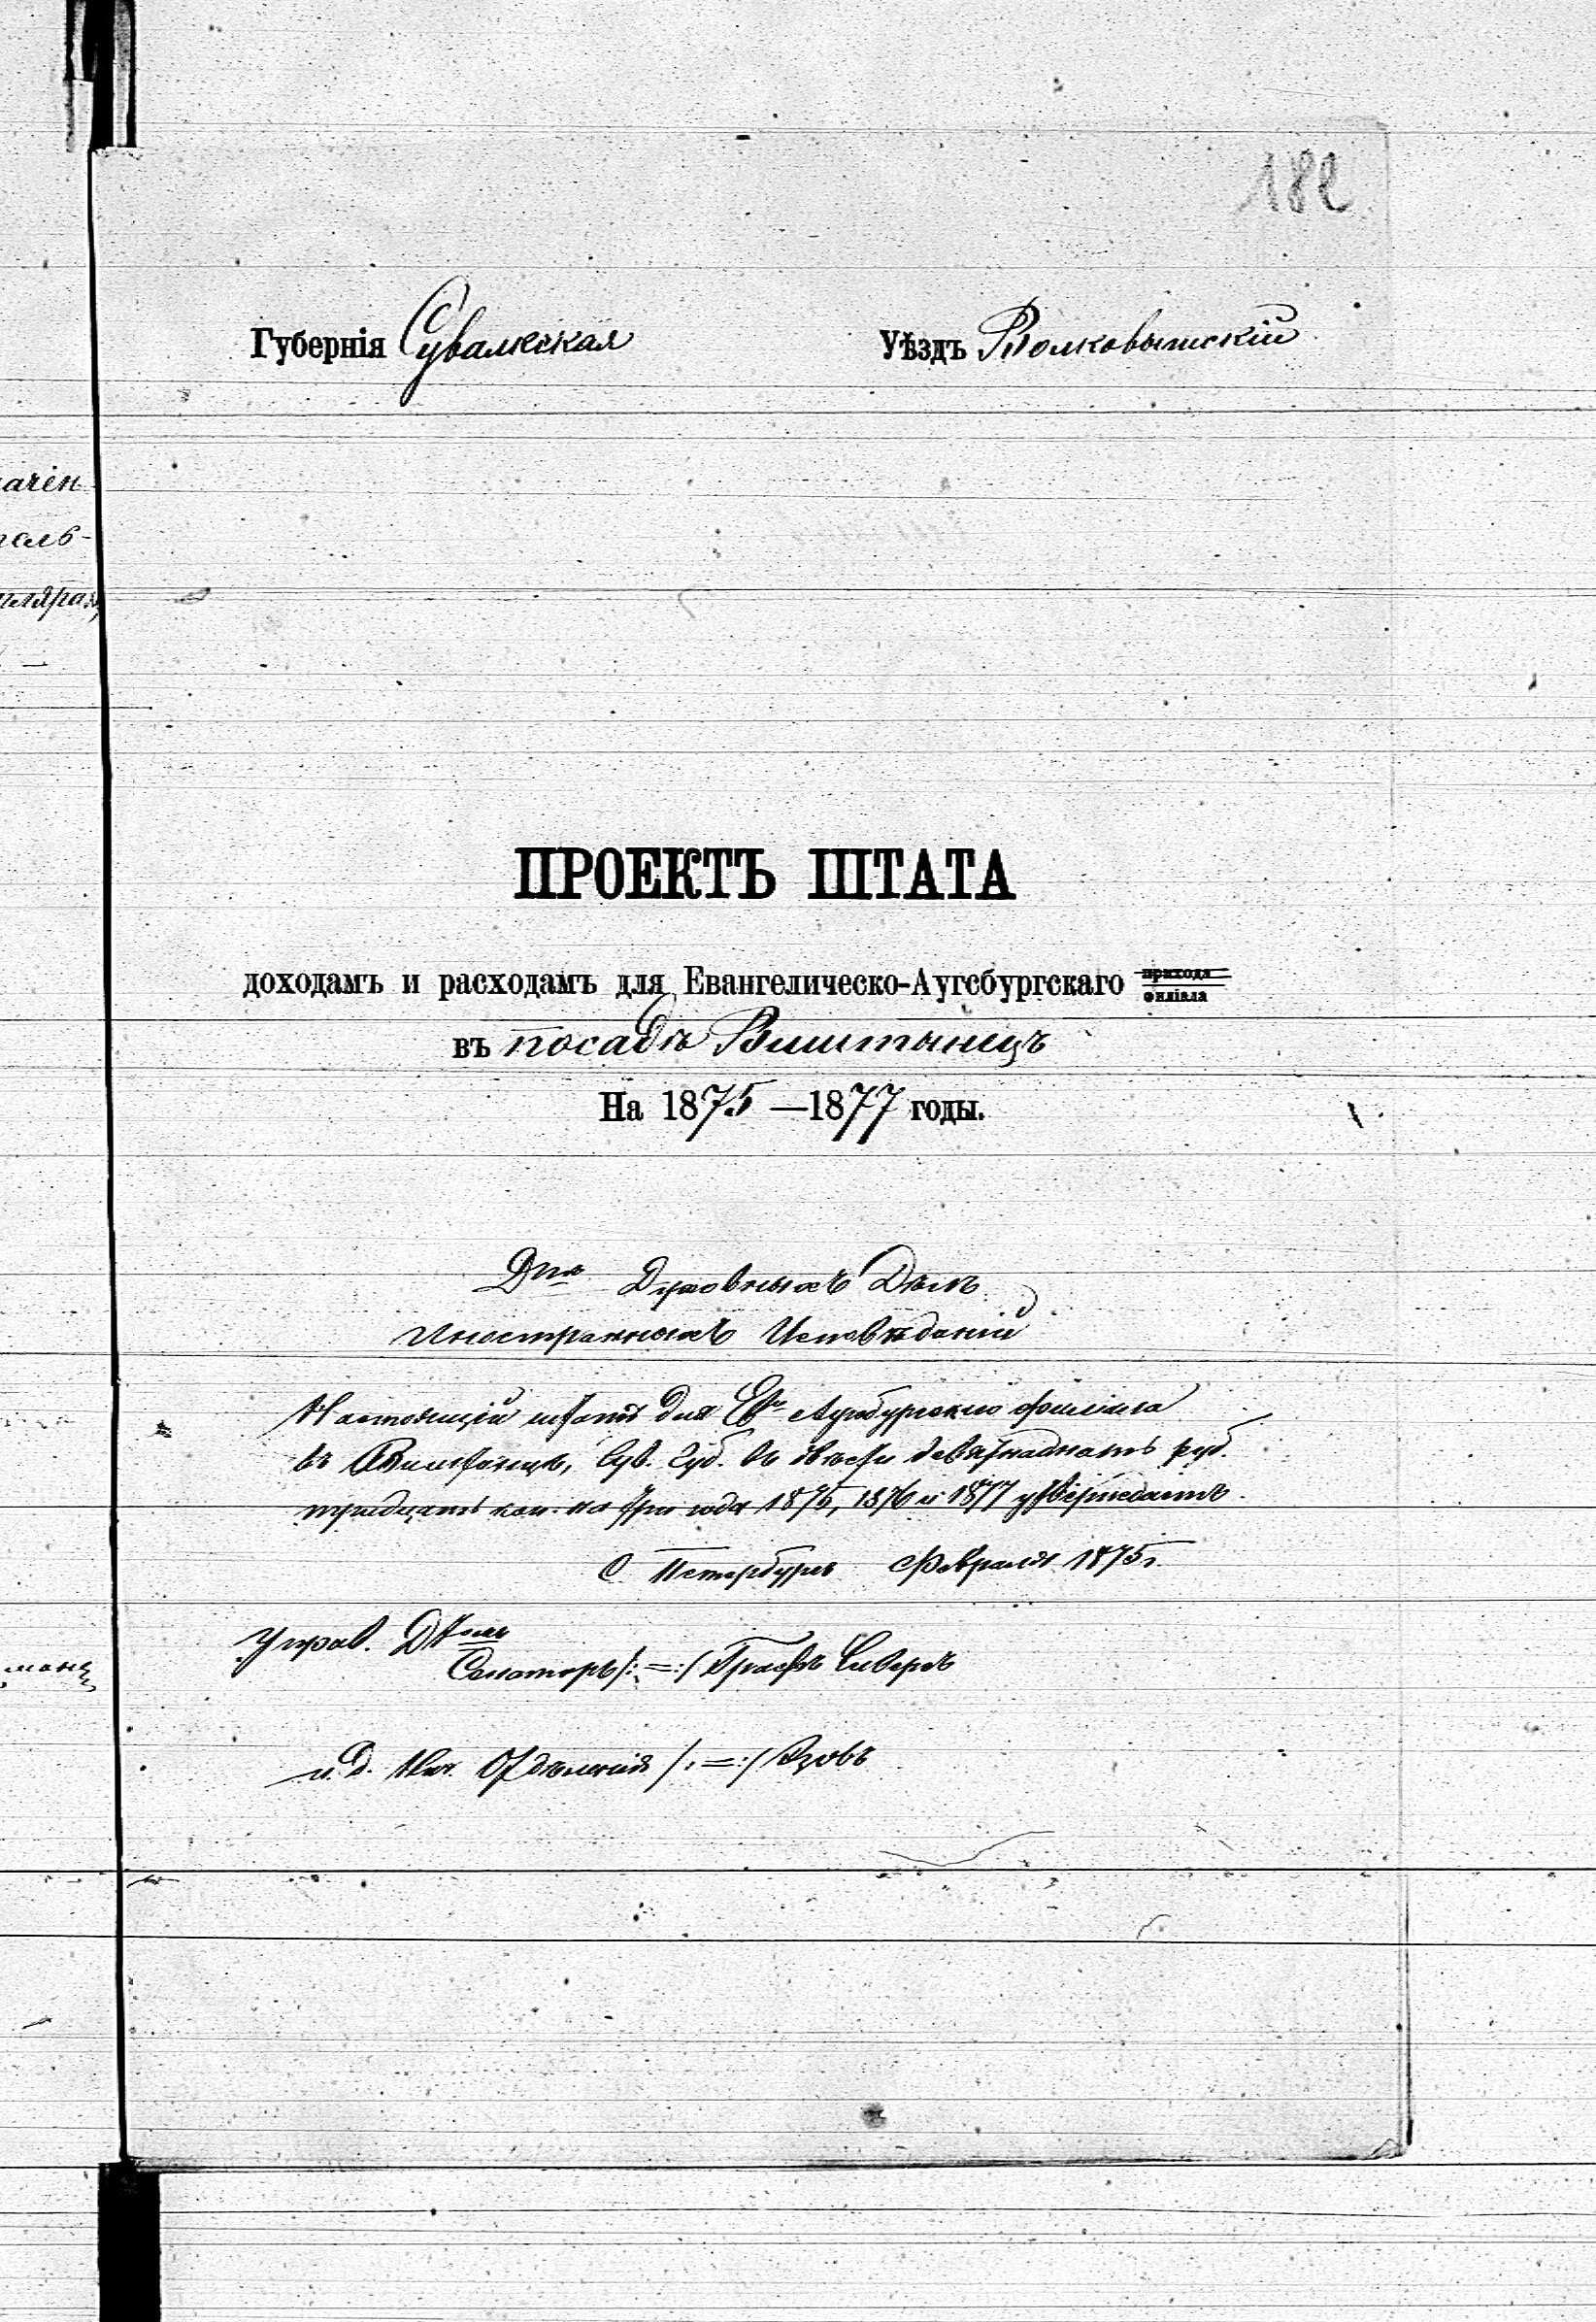 182
Губернія Сувалкская Уѣздъ Волковышскій
ачін
таль-
пляра,
ПРОЕКТЪ ШТАТА
доходамъ и расходамъ для Евангелическо-Аугсбургскаго прихода
филіала
въ посадѣ Виштынецъ
На 1875 —1877 годы.
Д-тъ Духовныхъ Дѣлъ
Иностранныхъ Исповѣданій
Настоящій штатъ для Ев. Аугсбургскаго филіала
въ Виштынцѣ, Сув. Губ. въ двѣсти девятнадцать руб.
тридцать коп. на три года 1875, 1876 и 1877 утверждаетъ.
С. Петербургъ Февраля 1875 г.
Управ. Д-томъ
Сенаторъ /:—:/ Графъ Сиверсъ
и. д. Нач. Отдѣленія /:—:/